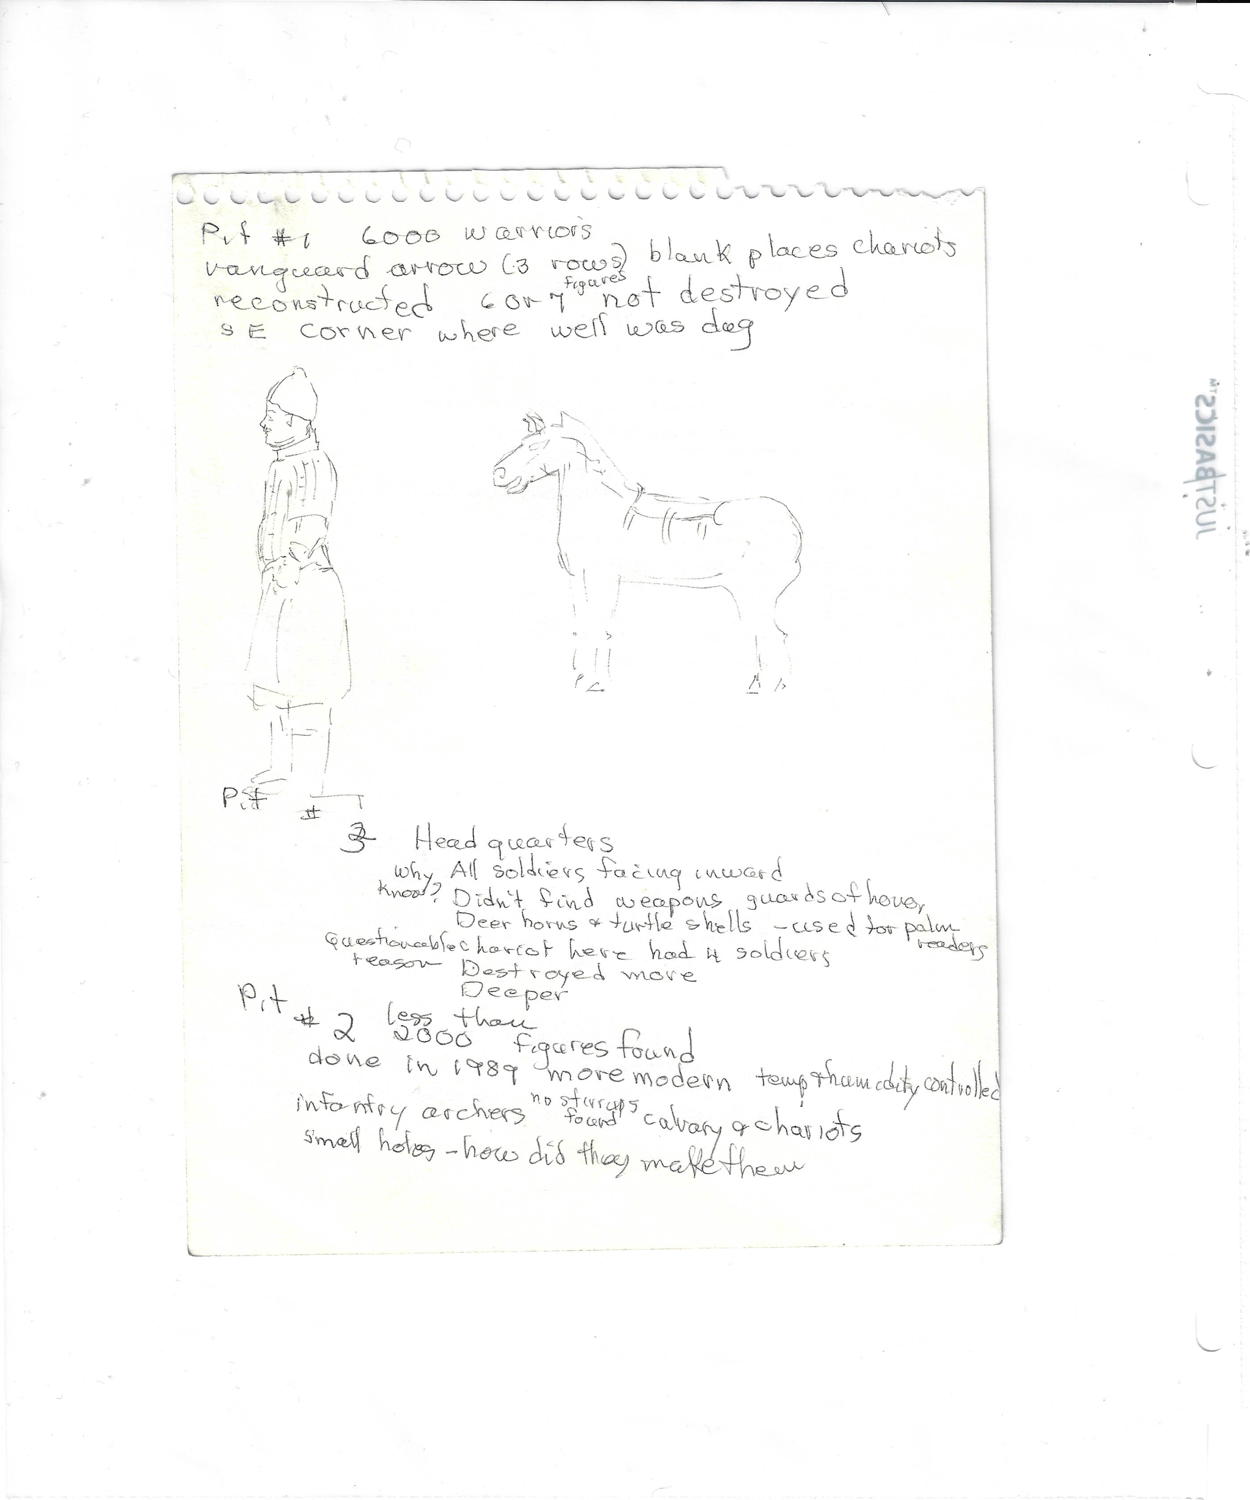 Pit #1 6000 warriors
vanguard arrow (3 rows) blank places chariots
reconstructed 6 or 7 figures not destroyed
SE corner where well was dug
Pit #
3 Headquarters
why All soldiers facing inward
know? Didn't find weapons guards of honor
Deer horns & turtle shells - used for palm readers
Questionable chariot here had 4 soldiers
reason Destroyed more
Deeper
Pit #2 less than
2000 figures found
done in 1989 more modern temp & humidity controlled
infantry archers no stirrups found calvary & chariots
small holes - how did they make them
justBASICS™